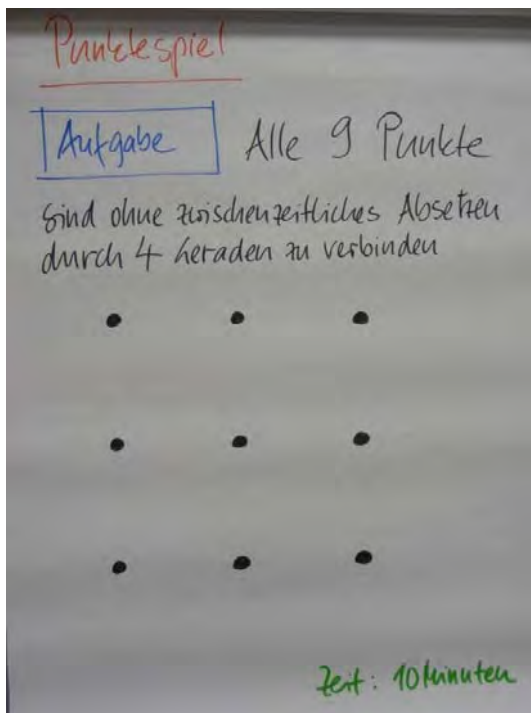 Punktespiel
Aufgabe Alle 9 Punkte
sind ohne zwischenzeitliches Absetzen
durch 4 Geraden zu verbinden
Zeit: 10 Minuten